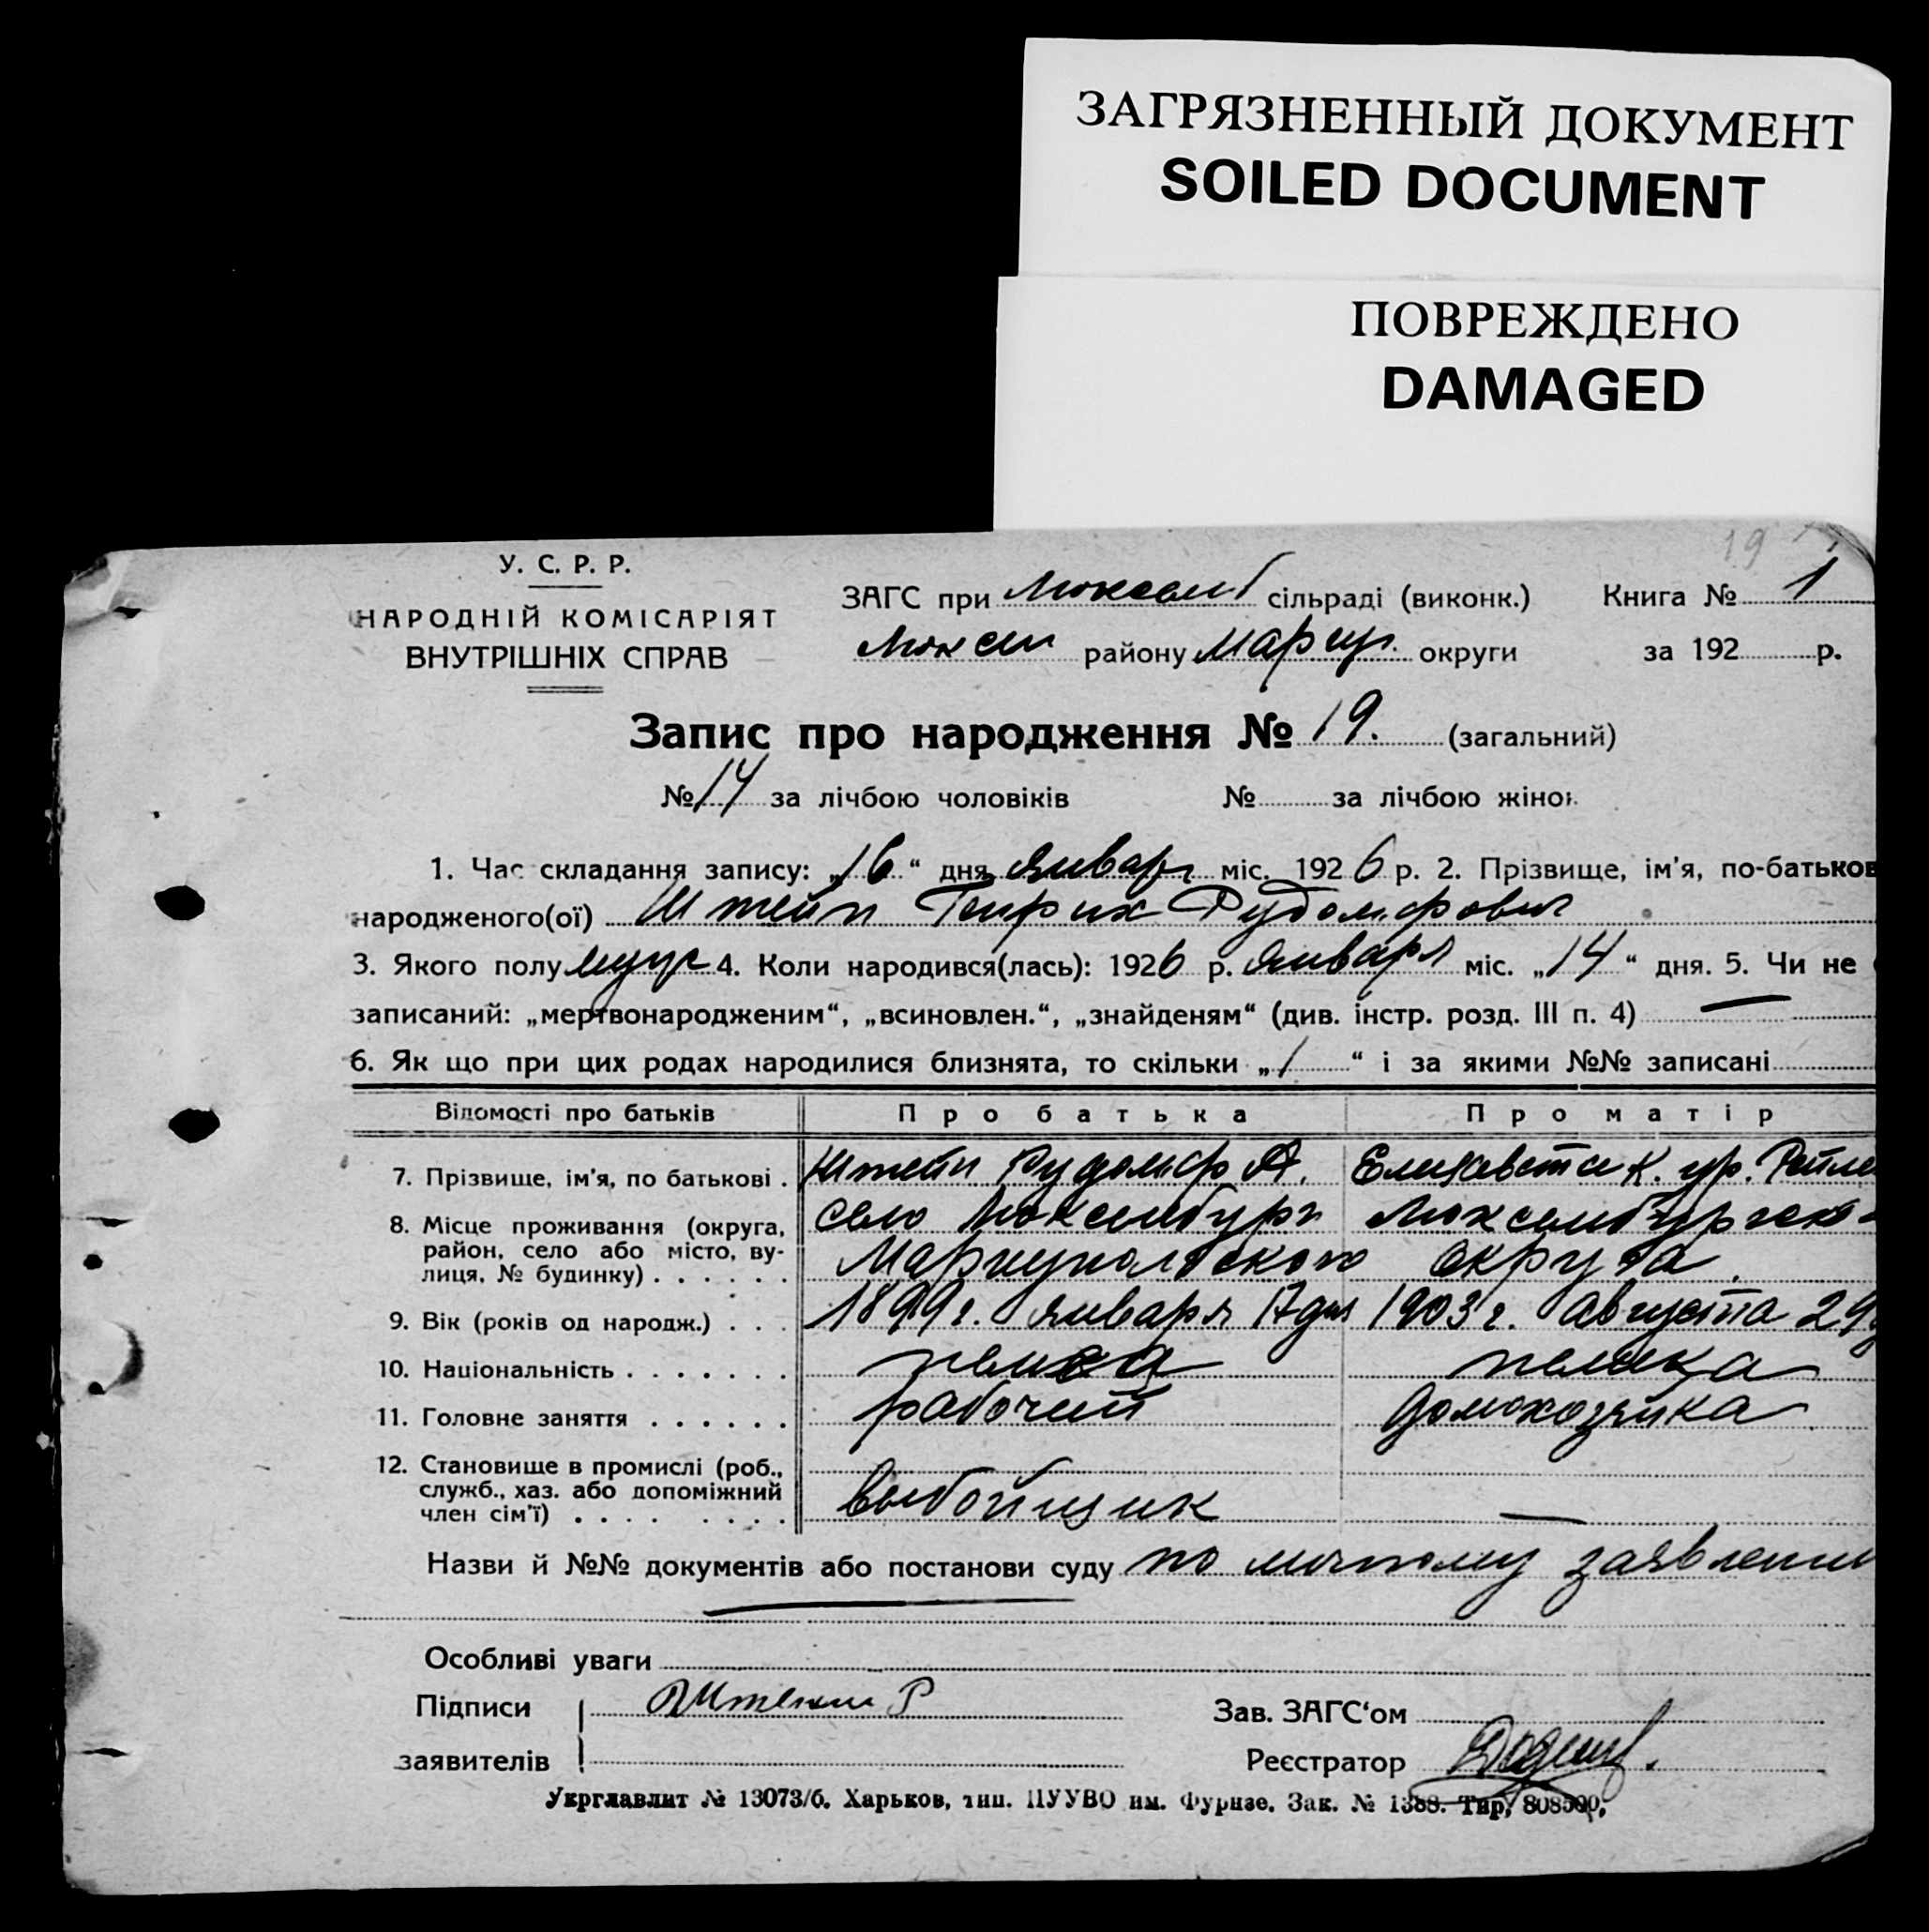 ЗАГРЯЗНЕННЫЙ ДОКУМЕНТ
SOILED DOCUMENT
ПОВРЕЖДЕНО
DAMAGED
19
У. С. Р. Р.
НАРОДНІЙ КОМІСАРІЯТ
ВНУТРІШНІХ СПРАВ
ЗАГС при Люксемб сільраді (виконк.) Книга № 1
Люксем району Мариуп. округи за 192 р.
Запис про народження № 19. (загальний)
№ 14 за лічбою чоловіків № за лічбою жінок
1. Час складання запису: „16“ дня января міс. 1926 р. 2. Прізвище, ім'я, по-батьков
народженого(ої) Штейн Генрих Рудольфович
3. Якого полу муж 4. Коли народився(лась): 1926 р. января міс. „14“ дня. 5. Чи не
записаний: „мертвонародженим“, „всиновлен.“, „знайденям“ (див. інстр. розд. III п. 4) —
6. Як що при цих родах народилися близнята, то скільки „1“ і за якими №№ записані
Відомості про батьків Про батька Про матір
7. Прізвище, ім'я, по батькові . Штейн Рудольф А. Елизавета К. ур.
8. Місце проживання (округа, район, село або місто, вулиця, № будинку) . . . . . . село Люксембург Люксембургско-
Мариупольского округа.
9. Вік (років од народж.) . . . 1899 г. января 17 дня 1903 г. августа 29
10. Національність . . . . . . . немка
11. Головне заняття . . . . . . рабочий домохозяйка
12. Становище в промислі (роб., служб., хаз. або допоміжний член сім'ї) . . . . . . . . выбойщик —
Назви й №№ документів або постанови суду по личному заявлению
Особливі уваги
Підписи Штейн Р
заявителів
Зав. ЗАГС'ом
Реєстратор
Укрглавлит № 13073/б. Харьков, тип. ПУУВО им. Фрунзе. Зак. № 1388. Тир, 808500,